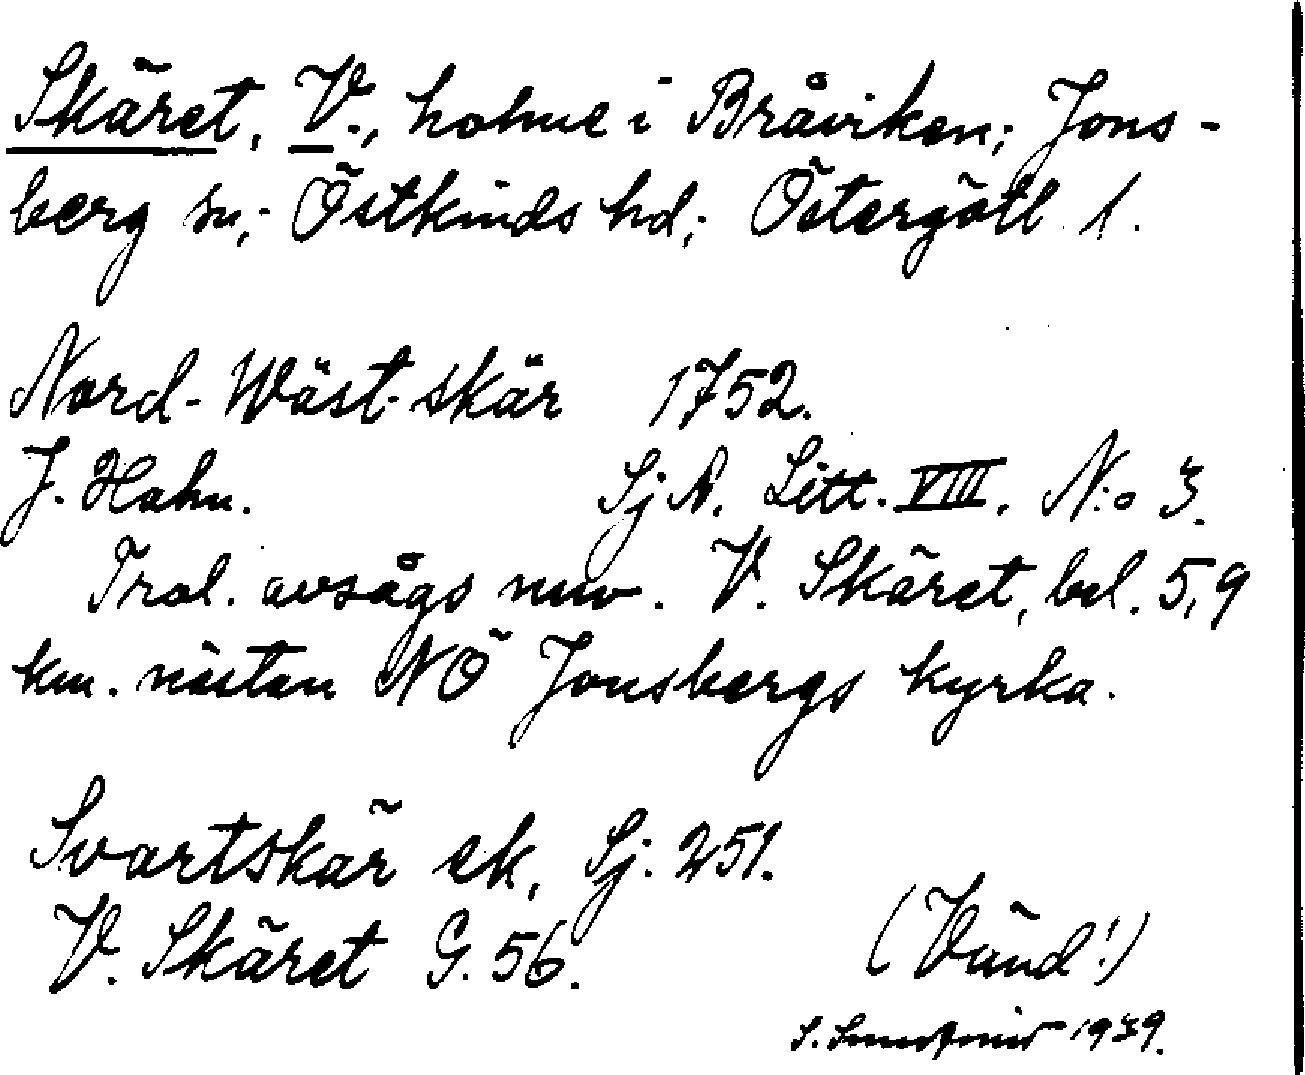 Skäret, V., holme i Bråviken; Jons-
berg sn; Östkinds hd; Östergötl l.
Nord-Wäst-skär 1752.
J. Hahn. SjA. Litt. VIII. N:o 3.
Trol. avsågs nuv. V. Skäret, bel. 5,9
km. nästan NÖ Jonsbergs kyrka.
Svartskär ek, Sj. 251.
V. Skäret G. 56.
(Vänd!)
S. 1939.